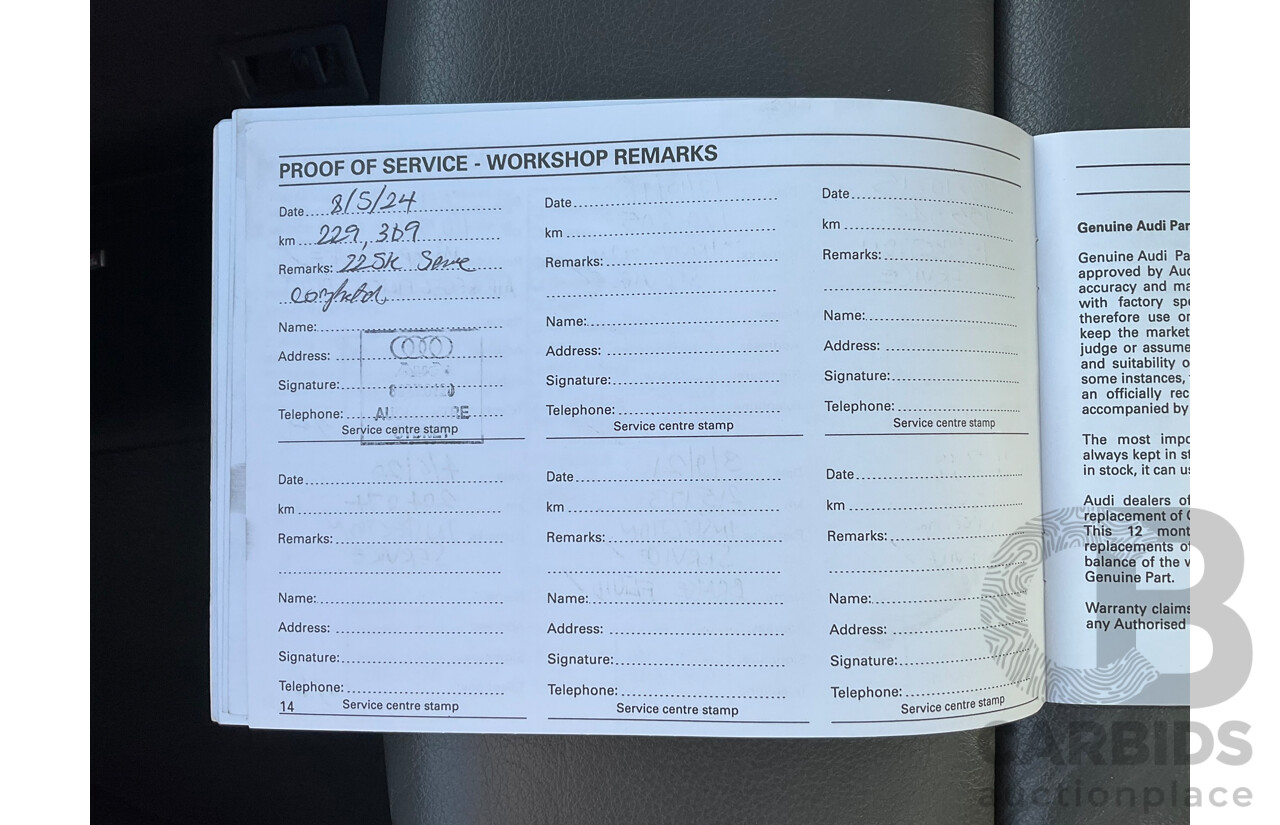 PROOF OF SERVICE - WORKSHOP REMARKS
Date 8/5/24
km 229,369
Remarks: 225K
Name:
Address:
Signature:
Telephone:
Service centre stamp
Date
km
Remarks:
Name:
Address:
Signature:
Telephone:
Service centre stamp
Date
km
Remarks:
Name:
Address:
Signature:
Telephone:
Service centre stamp
Date
km
Remarks:
Name:
Address:
Signature:
Telephone:
Service centre stamp
14
Date
km
Remarks:
Name:
Address:
Signature:
Telephone:
Service centre stamp
Date
km
Remarks:
Name:
Address:
Signature:
Telephone:
Service centre stamp
Genuine Audi Par
Genuine Audi Pa
approved by Aud
accuracy and ma
with factory spe
therefore use or
keep the market
judge or assume
and suitability o
some instances,
an officially rec
accompanied by
The most impo
always kept in st
in stock, it can us
Audi dealers of
replacement of G
This 12 mont
replacements of
balance of the v
Genuine Part.
Warranty claims
any Authorised
CARBIDS
auctionplace